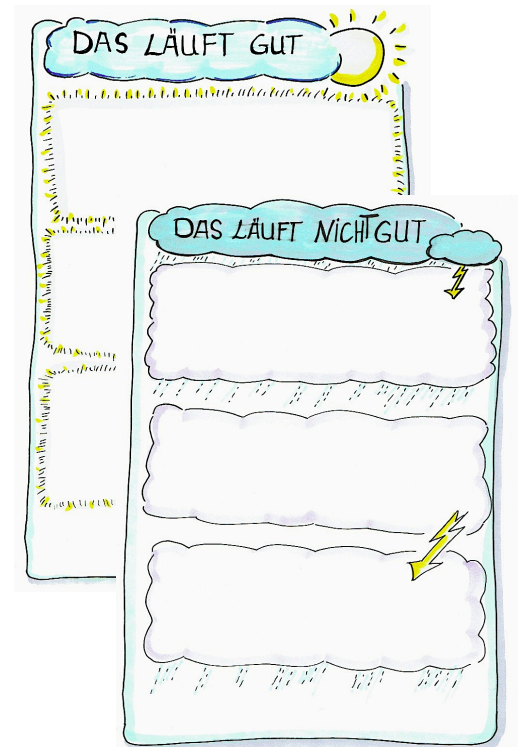 DAS LÄUFT GUT
DAS LÄUFT NICHT GUT